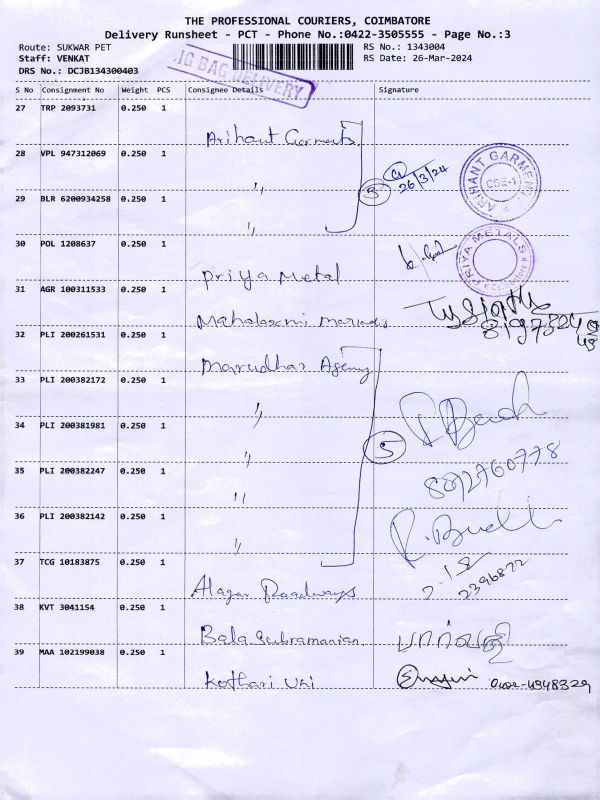 THE PROFESSIONAL COURIERS, COIMBATORE
Delivery Runsheet - PCT - Phone No.:0422-3505555 - Page No.:3
Route: SUKWAR PET RS No.: 1343004
Staff: VENKAT RS Date: 26-Mar-2024
DRS No.: DCJB134300403
BAG DELIVERY
S No Consignment No Weight PCS Consignee Details Signature
27 TRP 2093731 0.250 1 Arihant Garments
28 VPL 947312069 0.250 1 "
26/3/24
ARIHANT GARMEN
COE-1
29 BLR 6200934258 0.250 1 "
30 POL 1208637 0.250 1 Priya Metal
PRIYA METALS
31 AGR 100311533 0.250 1 Mahalaxmi
32 PLI 200261531 0.250 1 Marudhar Agency
33 PLI 200382172 0.250 1 "
34 PLI 200381981 0.250 1 " 5
35 PLI 200382247 0.250 1 "
36 PLI 200382142 0.250 1 "
37 TCG 10183875 0.250 1 Alagar Roadways
2396822
38 KVT 3041154 0.250 1 Bala Subramanian பார்வதி
39 MAA 102199038 0.250 1 Kothari